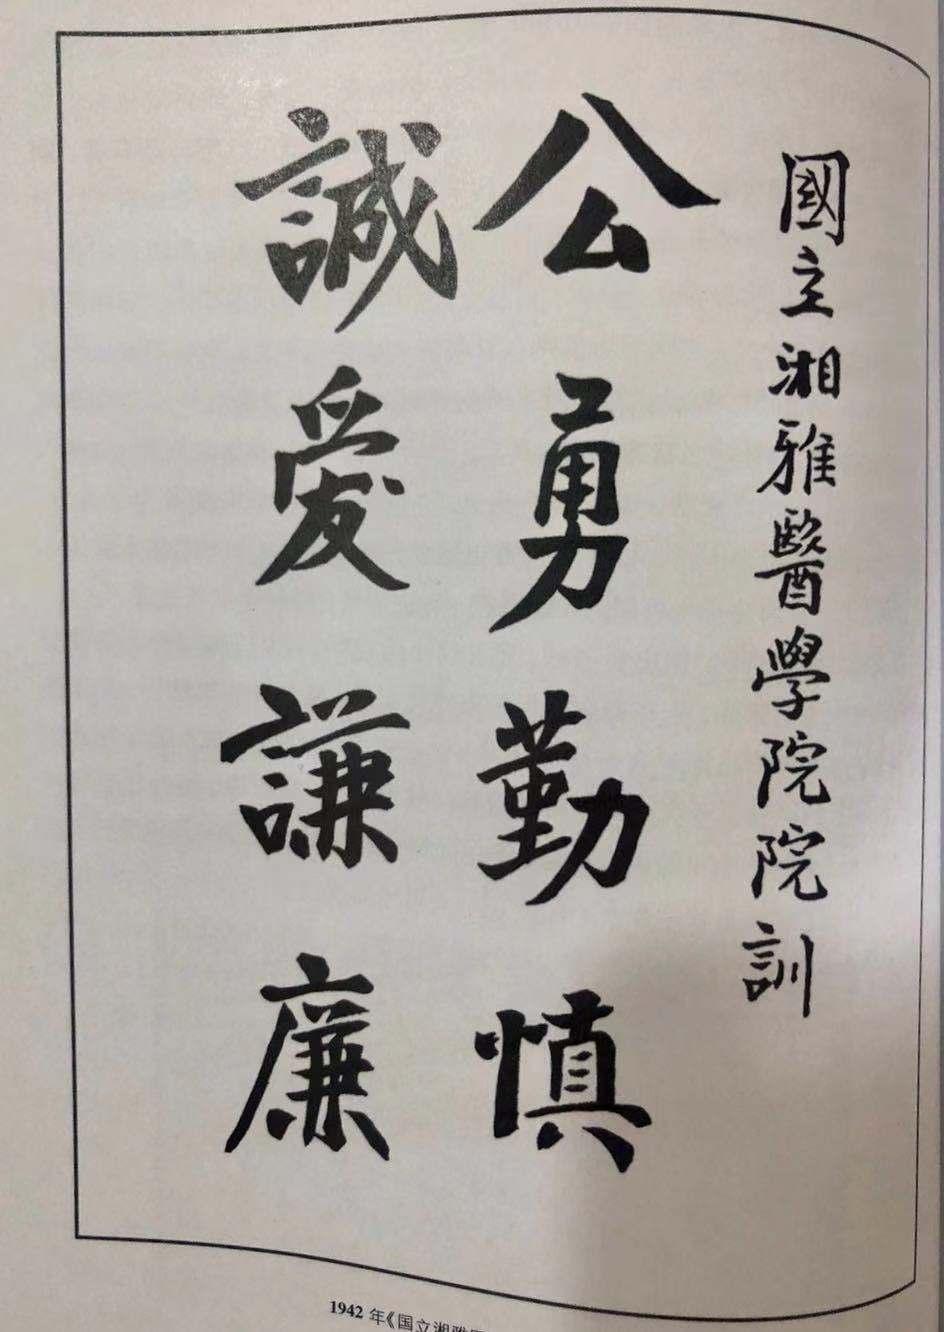 國立湘雅醫學院院訓
公勇勤慎
誠爱謙廉
1942 年《国立湘雅